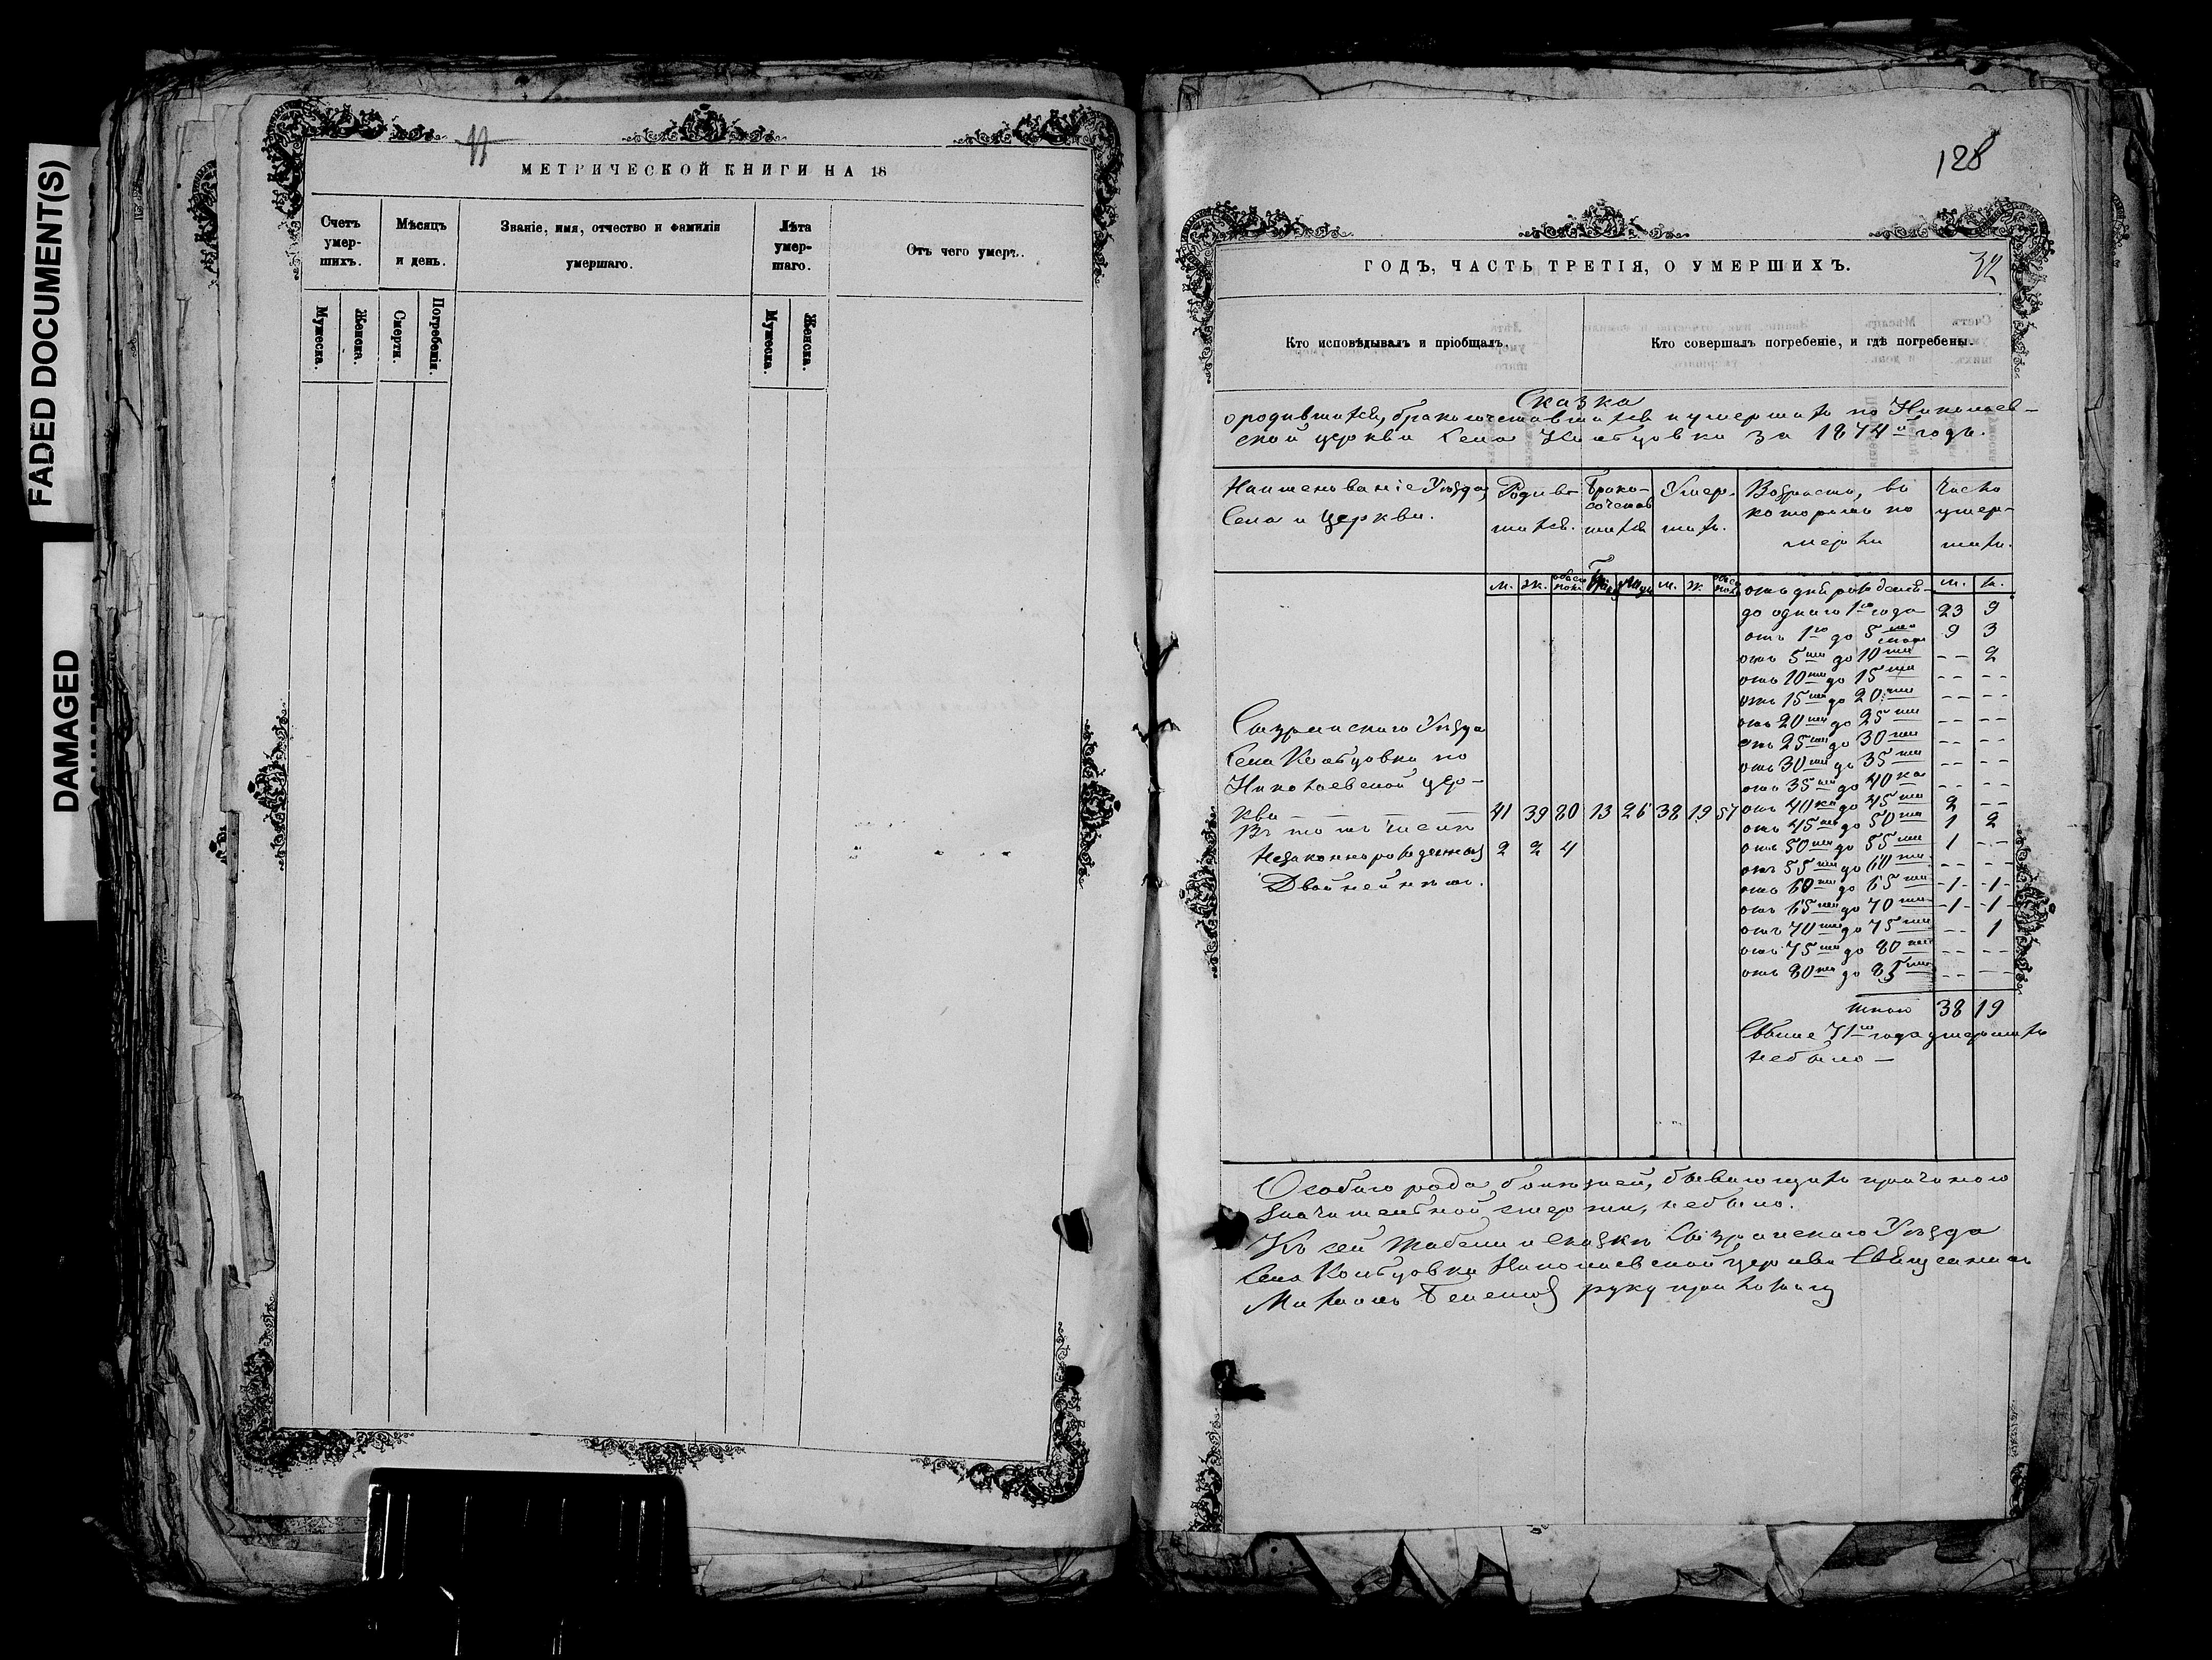 FADED DOCUMENT(S)
DAMAGED
МЕТРИЧЕСКОЙ КНИГИ НА 18
Счетъ умер-шихъ.
Мѣсяцъ и день.
Званіе, имя, отчество и фамилія умершаго.
Лѣта умер-шаго.
Отъ чего умеръ.
Мужеска.
Женска.
Смерти.
Погребенія.
Мужеска.
Женска.
128
ГОДЪ, ЧАСТЬ ТРЕТІЯ, О УМЕРШИХЪ.
32
Кто исповѣдывалъ и пріобщалъ.
Кто совершалъ погребеніе, и гдѣ погребены.
Сказка
о родившихся, бракосочетавшихся и умершихъ по Николаев-
ской церкви села Кольцовки за 1874й годъ.
Наименованіе Уѣзда, Села и Церкви.
Родив-шихся.
Брако-сочетав шихся
Умер-шихъ.
Возрасты, въ которыхъ по мерли
Число умер-шихъ.
м. ж. обоего пола
м. ж. обоего пола
м. ж.
отъ дня рожденія
до одного 1го года 23 9
отъ 1го до 5ти 9 3
отъ 5ти до 10ти -- 2
отъ 10ти до 15ти -- --
отъ 15ти до 20ти -- --
отъ 20ти до 25ти -- --
отъ 25ти до 30ти -- --
отъ 30ти до 35ти -- --
отъ 35ти до 40ка -- --
отъ 40ка до 45ти 2 --
отъ 45ти до 50ти 1 2
отъ 50ти до 55ти 1 --
отъ 55ти до 60ти -- --
отъ 60ти до 65ти -1- -1-
отъ 65ти до 70ти -1- -1-
отъ 70ти до 75ти -- 1
отъ 75ти до 80ти -- --
отъ 80ти до 85ти -- --
итого 38 19
Свыше 71го года умершихъ
небыло —
Сызранскаго Уѣзда
Села Кольцовки по
Николаевской цер-
кви — — — — 41 39 80 13 26 38 19 57
Въ томъ числѣ
Незаконнорожденныхъ 2 2 4
Двойней нѣтъ.
Особаго рода болѣзней, бывающихъ причиною
значительной смерти, небыло.
Къ сей табели и сказкѣ Сызранскаго Уѣзда
Села Кольцовки Николаевской церкви Священникъ
руку приложилъ